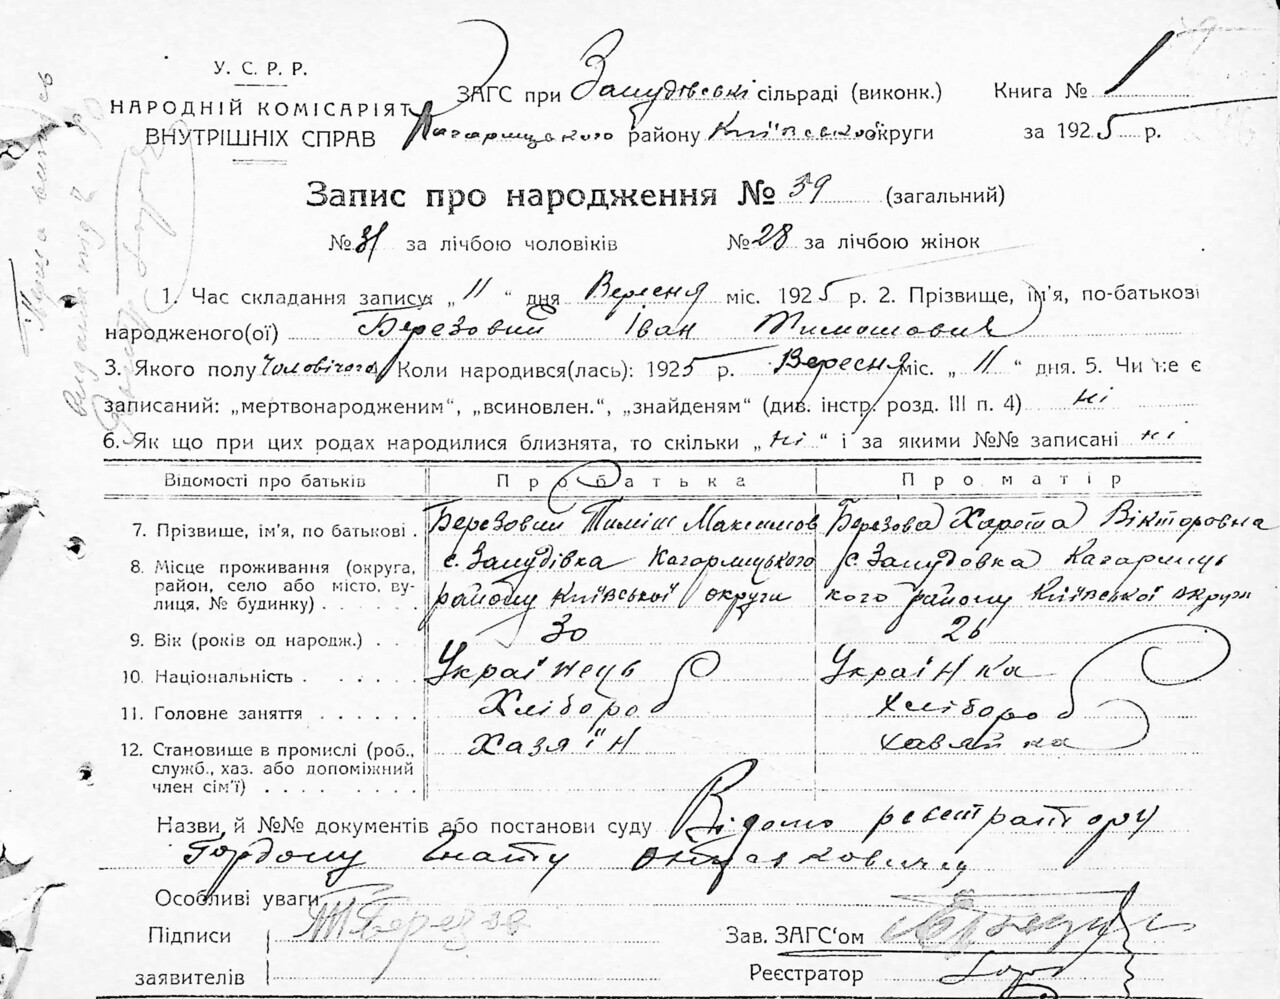 У. С. Р. Р.
НАРОДНІЙ КОМІСАРІЯТ
ВНУТРІШНІХ СПРАВ
ЗАГС при Зашудівські сільраді (виконк.) Книга № 1
Кагарлицького району Київської округи за 1925 р.
Запис про народження № 59 (загальний)
№ 31 за лічбою чоловіків № 28 за лічбою жінок
1. Час складання запису: „ 11 “ дня Вересня міс. 1925 р. 2. Прізвище, ім'я, по-батькові
народженого(ої) Березовий Іван Тимошович
3. Якого полу Чоловічого Коли народився(лась): 1925 р. Вересня міс. „ 11 “ дня. 5. Чи не є
записаний: „мертвонародженим“, „всиновлен.“, „знайденям“ (див. інстр. розд. III п. 4) ні
6. Як що при цих родах народилися близнята, то скільки „ ні “ і за якими №№ записані ні
Відомості про батьків Про батька Про матір
7. Прізвище, ім'я, по батькові . Березовий Тиміш Максимов Березова Вікторовна
8. Місце проживання (округа, район, село або місто, вулиця, № будинку) с. Кагарлицького району Київської округи с. Кагарлицького району Київської округи
9. Вік (років од народж.) . . 30 26
10. Національність . Українець Українка
11. Головне заняття Хлібороб Хлібороб
12. Становище в промислі (роб., служб., хаз. або допоміжний член сім'ї) Хазяїн Хазяйка
Назви й №№ документів або постанови суду Відомо реєстратору
Гордому
Особливі уваги
Підписи
заявителів
Зав. ЗАГС'ом
Реєстратор